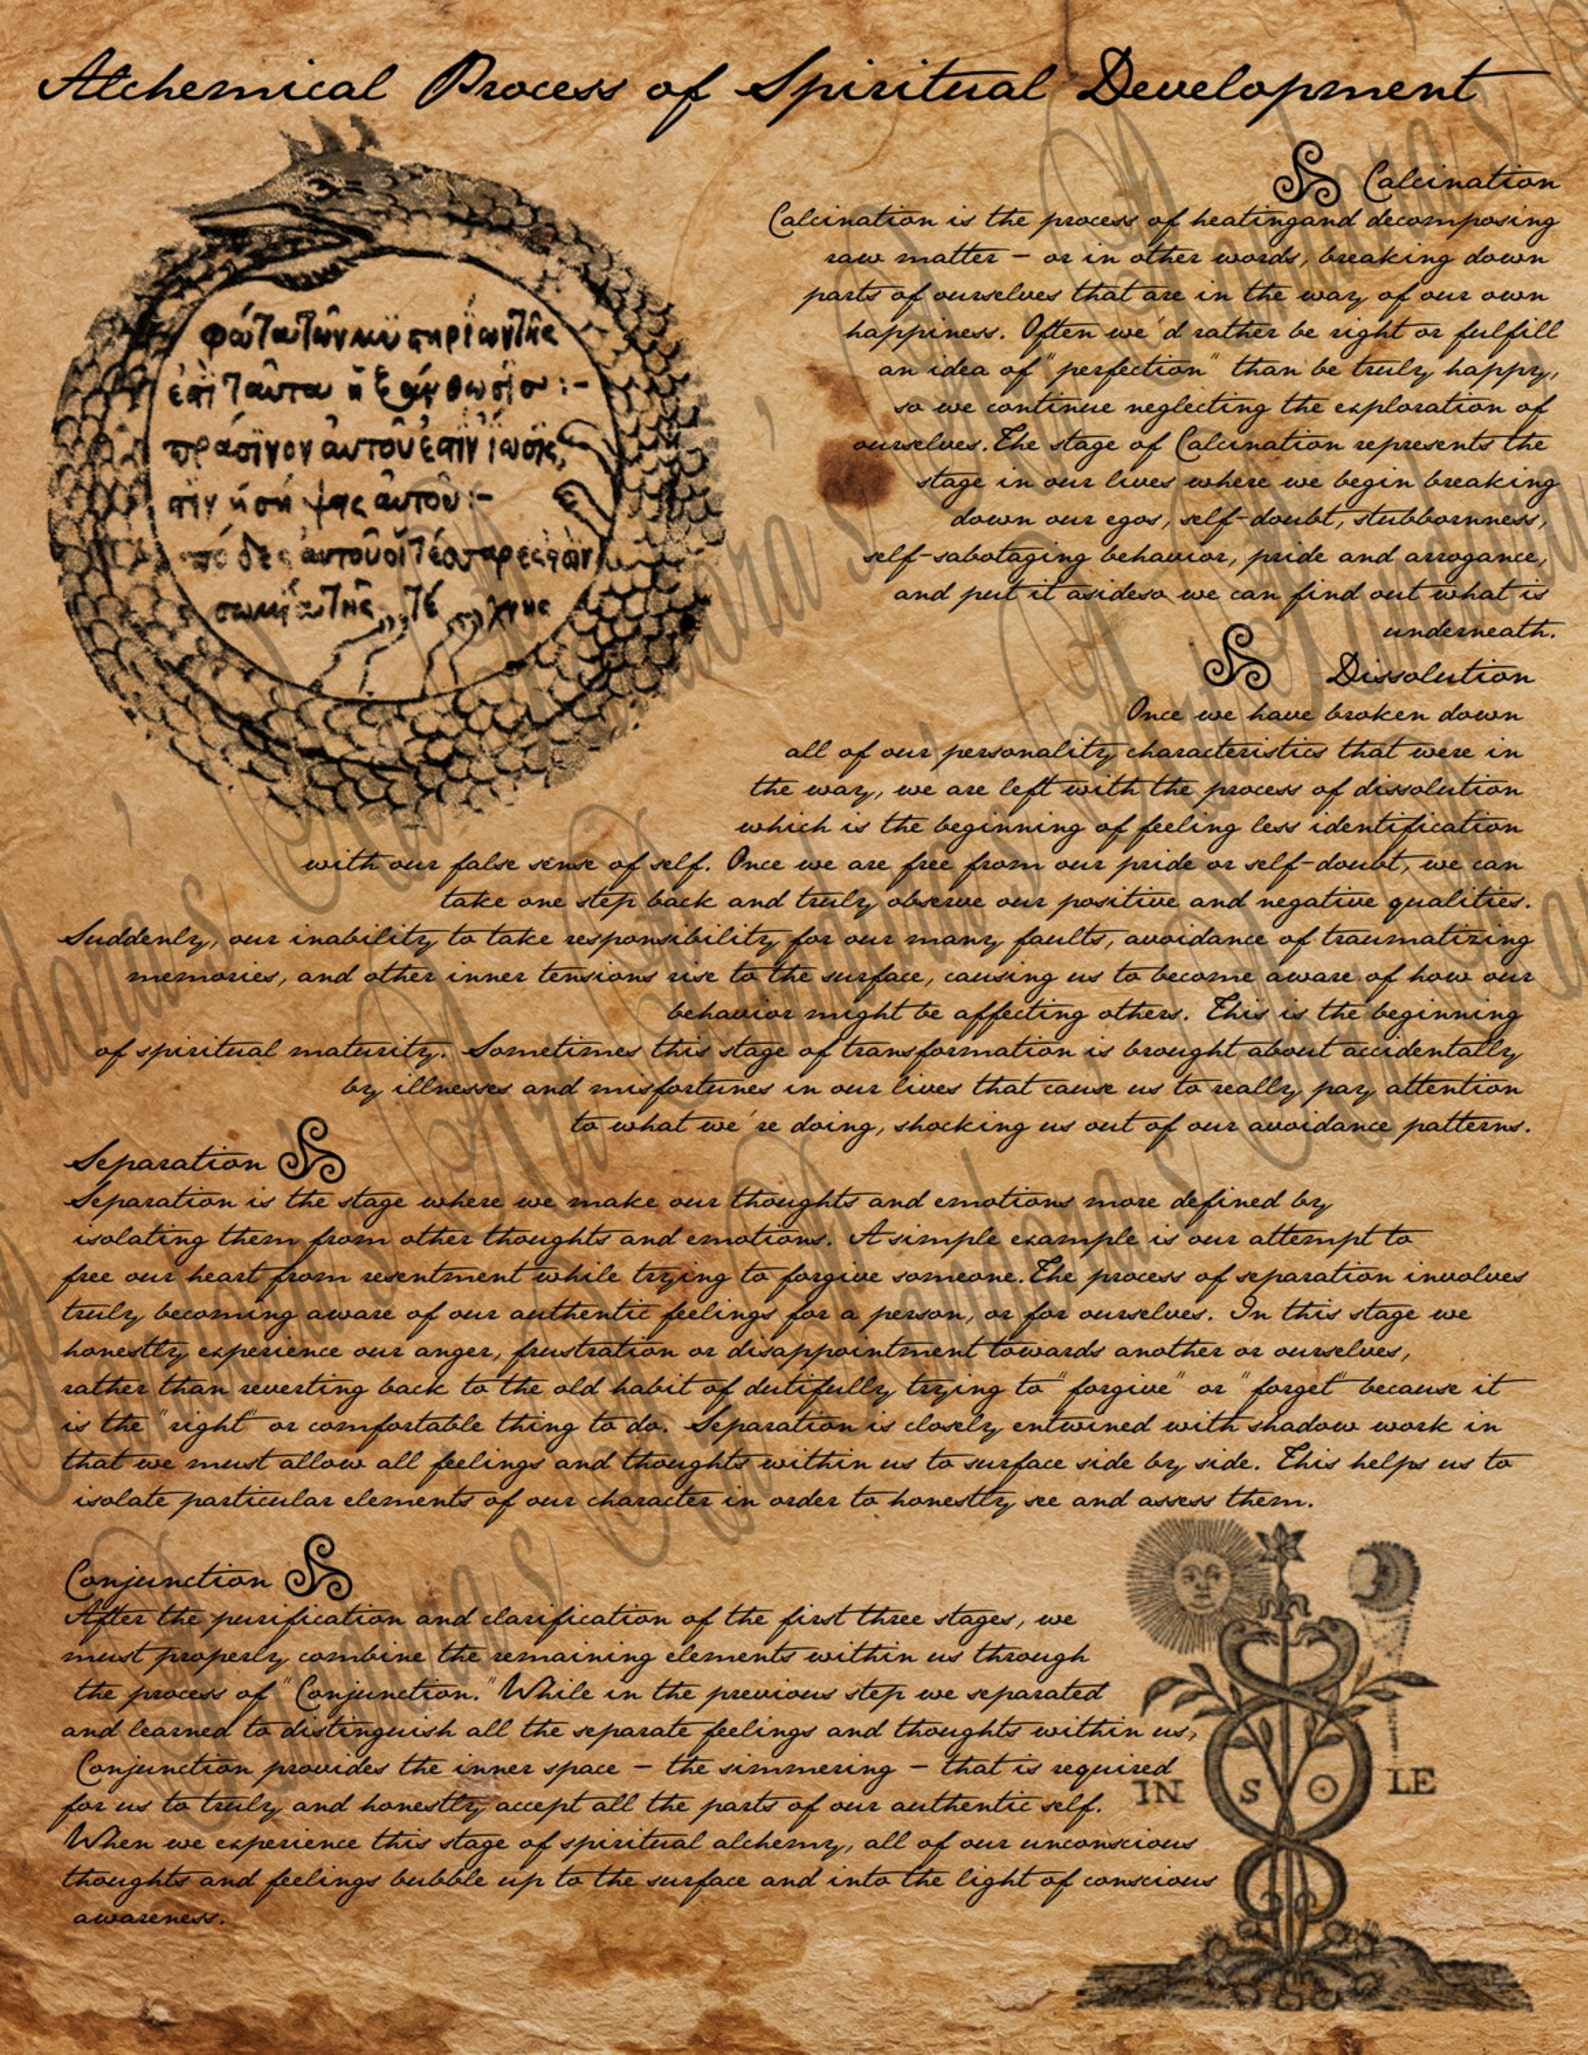 Alchemical Process of Spiritual Development
Calcination
Calcination is the process of heatingand decomposing
raw matter – or in other words, breaking down
parts of ourselves that are in the way of our own
happiness. Often we'd rather be right or fulfill
an idea of "perfection" than be truly happy,
so we continue neglecting the exploration of
ourselves.The stage of Calcination represents the
stage in our lives where we begin breaking
down our egos, self-doubt, stubbornness,
self-sabotaging behavior, pride and arrogance,
and put it asideso we can find out what is
underneath.
Dissolution
Once we have broken down
all of our personality characteristics that were in
the way, we are left with the process of dissolution
which is the beginning of feeling less identification
with our false sense of self. Once we are free from our pride or self-doubt, we can
take one step back and truly observe our positive and negative qualities.
Suddenly, our inability to take responsibility for our many faults, avoidance of traumatizing
memories, and other inner tensions rise to the surface, causing us to become aware of how our
behavior might be affecting others. This is the beginning
of spiritual maturity. Sometimes this stage of transformation is brought about accidentally
by illnesses and misfortunes in our lives that cause us to really pay attention
to what we're doing, shocking us out of our avoidance patterns.
Separation
Separation is the stage where we make our thoughts and emotions more defined by
isolating them from other thoughts and emotions. A simple example is our attempt to
free our heart from resentment while trying to forgive someone.The process of separation involves
truly becoming aware of our authentic feelings for a person, or for ourselves. In this stage we
honestly experience our anger, frustration or disappointment towards another or ourselves,
rather than reverting back to the old habit of dutifully trying to "forgive" or "forget" because it
is the "right" or comfortable thing to do. Separation is closely entwined with shadow work in
that we must allow all feelings and thoughts within us to surface side by side. This helps us to
isolate particular elements of our character in order to honestly see and assess them.
Conjunction
After the purification and clarification of the first three stages, we
must properly combine the remaining elements within us through
the process of "Conjunction." While in the previous step we separated
and learned to distinguish all the separate feelings and thoughts within us,
Conjunction provides the inner space – the simmering – that is required
for us to truly and honestly accept all the parts of our authentic self.
When we experience this stage of spiritual alchemy, all of our unconscious
thoughts and feelings bubble up to the surface and into the light of conscious
awareness.
IN S LE